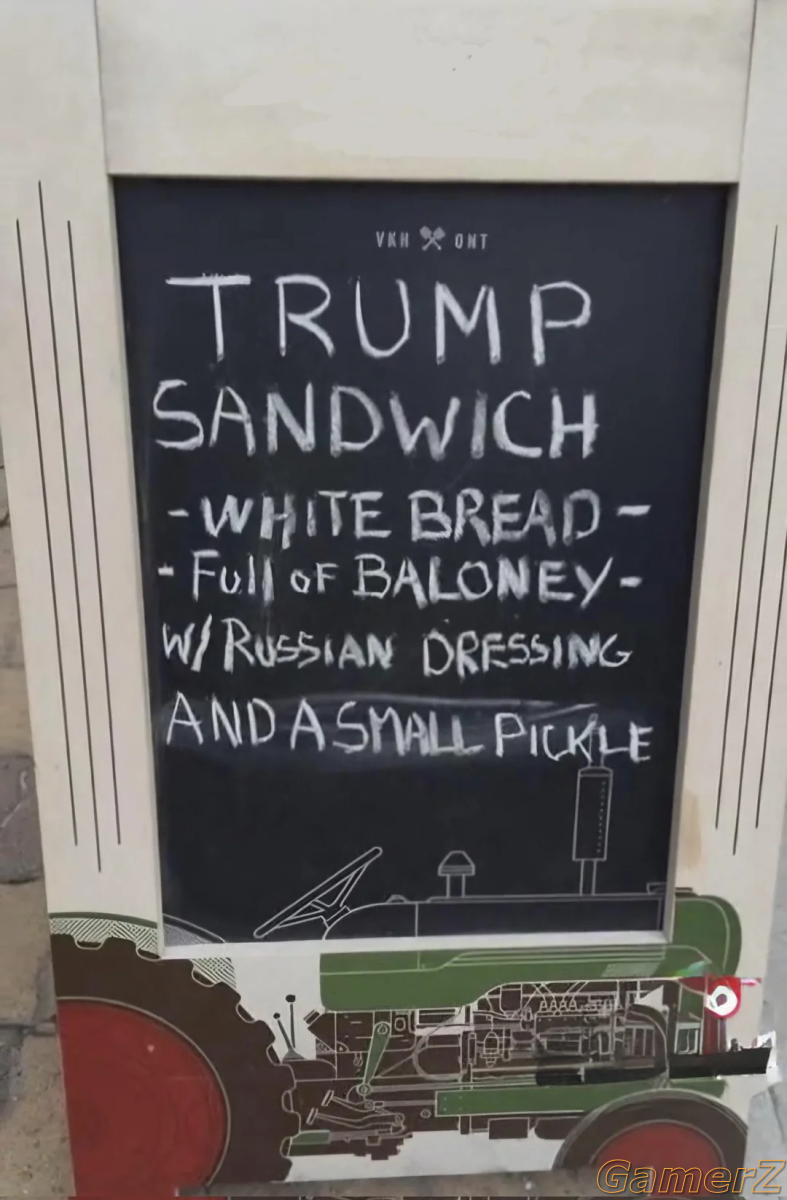 VKH ONT
TRUMP
SANDWICH
-WHITE BREAD-
-Full oF BALONEY-
W/ RUSSIAN DRESSING
AND A SMALL PICKLE
GamerZ